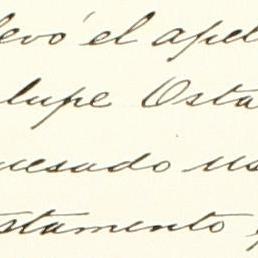 levó el apel
lupe Osta
uesado us
stamento